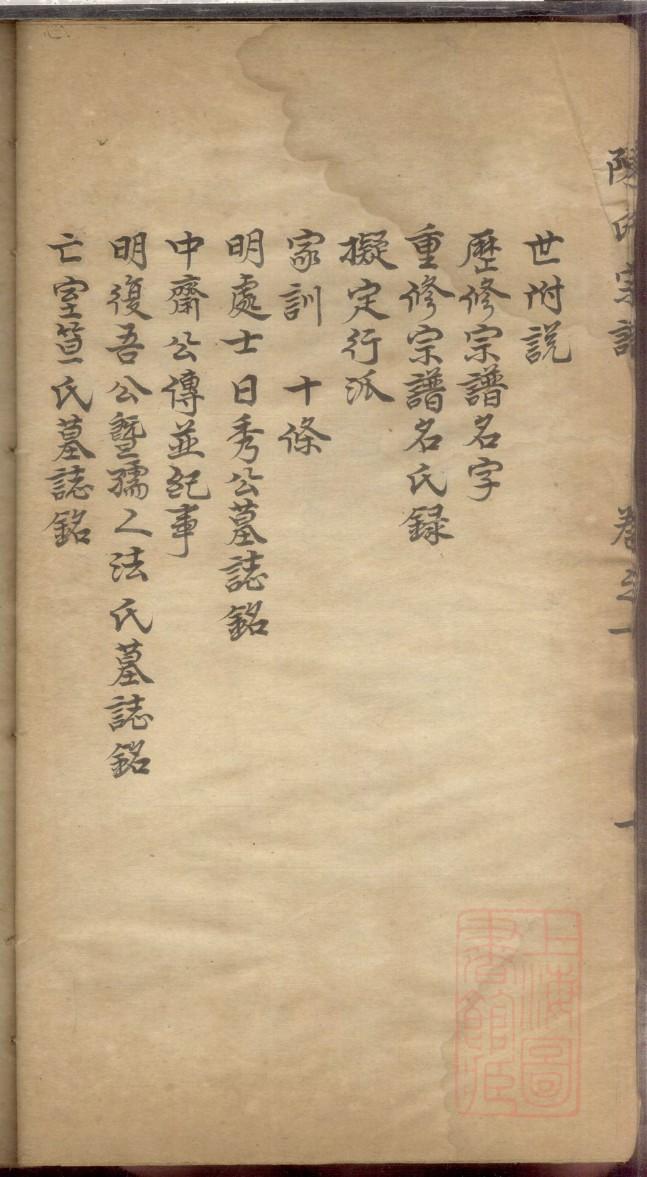 陳氏宗譜 卷之一 一
世附説
歷修宗譜名字
重修宗譜名氏録
擬定行派
家訓 十條
明處士日秀公墓誌銘
中齋公傳並紀事
明復吾公暨孺人法氏墓誌銘
亡室笪氏墓誌銘
上海圖書館藏